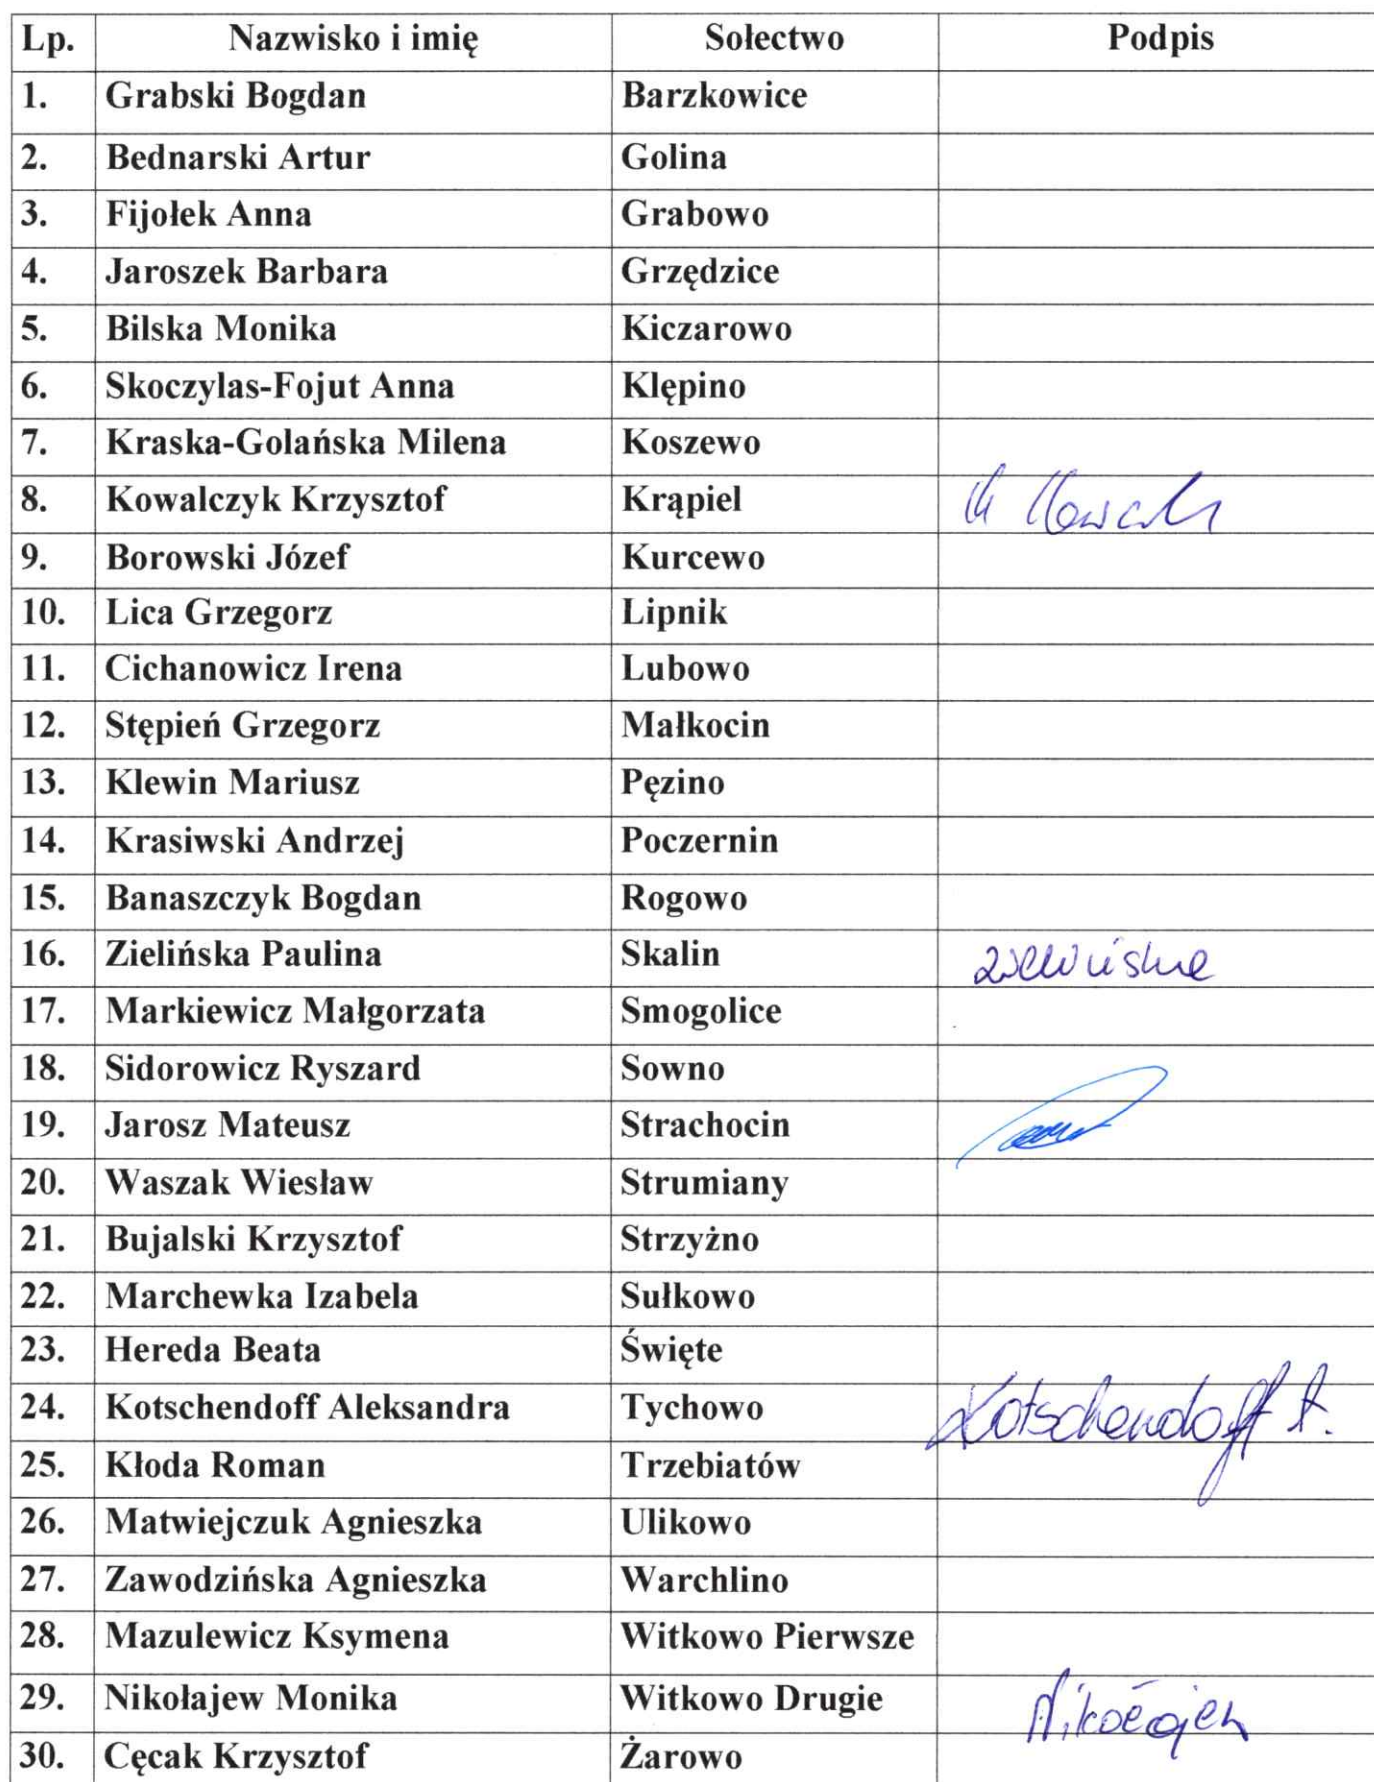 Lp. Nazwisko i imię Sołectwo Podpis
1. Grabski Bogdan Barzkowice
2. Bednarski Artur Golina
3. Fijołek Anna Grabowo
4. Jaroszek Barbara Grzędzice
5. Bilska Monika Kiczarowo
6. Skoczylas-Fojut Anna Klępino
7. Kraska-Golańska Milena Koszewo
8. Kowalczyk Krzysztof Krąpiel
9. Borowski Józef Kurcewo
10. Lica Grzegorz Lipnik
11. Cichanowicz Irena Lubowo
12. Stępień Grzegorz Małkocin
13. Klewin Mariusz Pęzino
14. Krasiwski Andrzej Poczernin
15. Banaszczyk Bogdan Rogowo
16. Zielińska Paulina Skalin Zielińska
17. Markiewicz Małgorzata Smogolice
18. Sidorowicz Ryszard Sowno
19. Jarosz Mateusz Strachocin
20. Waszak Wiesław Strumiany
21. Bujalski Krzysztof Strzyżno
22. Marchewka Izabela Sułkowo
23. Hereda Beata Święte
24. Kotschendoff Aleksandra Tychowo Kotschendoff A.
25. Kłoda Roman Trzebiatów
26. Matwiejczuk Agnieszka Ulikowo
27. Zawodzińska Agnieszka Warchlino
28. Mazulewicz Ksymena Witkowo Pierwsze
29. Nikołajew Monika Witkowo Drugie Nikołajew
30. Cęcak Krzysztof Żarowo